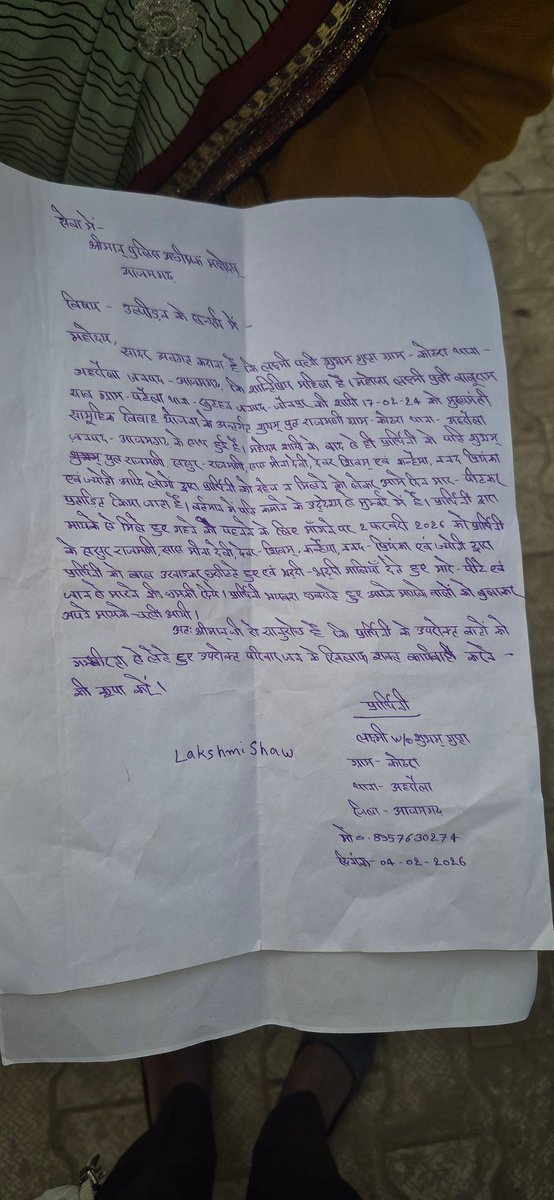 सेवा में-
श्रीमान् पुलिस अधीक्षक महोदय,
आजमगढ़
विषय - उत्पीड़न के सन्दर्भ में -
महोदय,
सादर अवगत कराना है कि लक्ष्मी पत्नी शुभम गुप्ता ग्राम - कोठरा थाना -
अहरौला जनपद - आजमगढ़ कि महिला है। महोदय लक्ष्मी पुत्री
साव ग्राम - पटैला थाना - जनपद - जौनपुर की शादी 17-02-24 को मुख्यमंत्री
सामूहिक विवाह योजना के अन्तर्गत शुभम् पुत्र राजमणी ग्राम - कोठरा थाना - अहरौला
जनपद - आजमगढ़ के साथ हुई है। महोदय शादी के बाद से ही प्रार्थिनी को पति शुभम्
पुत्र राजमणी, ससुर - राजमणी सास मीना देवी, देवर शिवम् एवं कन्हैया, ननद प्रियंका
एवं ज्योती आदि लोगों द्वारा प्रार्थिनी को दहेज न मिलने को लेकर आये दिन मार - पीटकर
प्रताड़ित किया जाता है। वर्तमान में पति कमाने के उद्देश्य से मुम्बई में है। प्रार्थिनी द्वारा
मायके से मिले हुए गहने को पहनने के लिए माँगने पर 2 फरवरी 2026 को प्रार्थिनी
के ससुर राजमणी, सास मीना देवी, देवर - शिवम्, कन्हैया, ननद - प्रियंका एवं ज्योती द्वारा
प्रार्थिनी को बाल हुए एवं भद्दी - भद्दी गालियाँ देते हुए मारे - पीटे एवं
जान से मारने की धमकी दिये। प्रार्थिनी हुए अपने मायके वालों को बुलाकर
अपने मायके चली आयी।
अतः श्रीमान जी से सादर अनुरोध है कि प्रार्थिनी के उपरोक्त बातों को
गम्भीरता से लेते हुए उपरोक्त के खिलाफ सख्त कार्यवाही करने -
की कृपा करें।
प्रार्थिनी
Lakshmi Shaw
लक्ष्मी w/o शुभम् गुप्ता
ग्राम - कोठरा
थाना - अहरौला
जिला - आजमगढ़
मो०. 8957630274
दिनांक - 04-02-2026